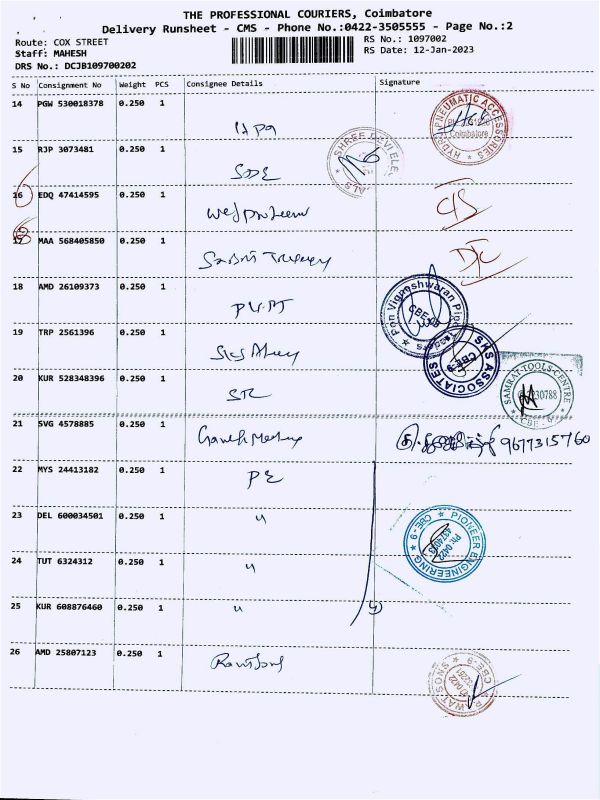 THE PROFESSIONAL COURIERS, Coimbatore
Delivery Runsheet - CMS - Phone No.:0422-3505555 - Page No.:2
Route: COX STREET
Staff: MAHESH
DRS No.: DCJB109700202
RS No.: 1097002
RS Date: 12-Jan-2023
S No Consignment No Weight PCS Consignee Details Signature
14 PGW 530018378 0.250 1
HYDRO PNEUMATIC ACCESSORIES
Coimbatore
15 RJP 3073481 0.250 1
SHREE DEVI
16 EDQ 47414595 0.250 1
17 MAA 568405850 0.250 1
18 AMD 26109373 0.250 1
Pon Vigneshwaran Pipe
CBE
19 TRP 2561396 0.250 1
SMS ASSOCIATES
CBE-9
20 KUR 528348396 0.250 1
SAMRAT TOOLS CENTRE
2230788
CBE - 9
21 SVG 4578885 0.250 1
9677315760
22 MYS 24413182 0.250 1
PE
23 DEL 600034501 0.250 1
"
PIONEER ENGINEERING
CBE-9
PH: 0422
24 TUT 6324312 0.250 1
"
25 KUR 608876460 0.250 1
"
26 AMD 25807123 0.250 1
WATSONS
CBE-9